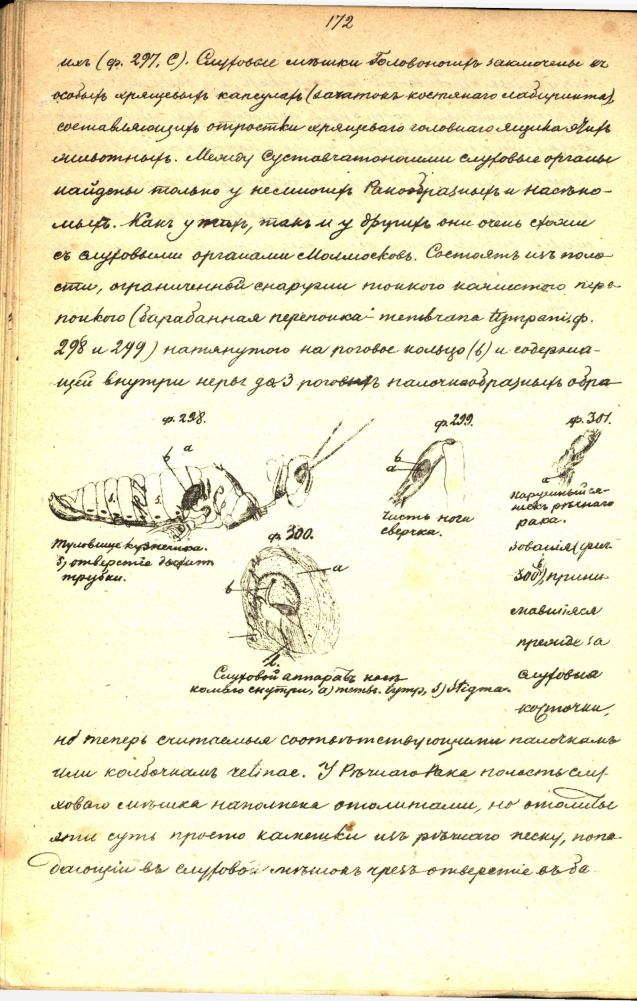 172
ихъ (ф. 297, С). Слуховые мѣшки Головоногихъ заключены въ
особыхъ хрящевыхъ капсулахъ (зачатокъ костянаго лабиринта)
составляющихъ отростки хрящеваго головнаго ящика этихъ
животныхъ. Между Суставчатоногими слуховые органы
найдены только у немногихъ Ракообразныхъ и насѣко-
мыхъ. Какъ у тѣхъ, такъ и у другихъ они очень схожи
съ слуховыми органами Моллюсковъ. Состоятъ изъ поло
сти, ограниченной снаружи тонкого кожистого пере
понкого (барабанная перепонка - membrana tympani, ф.
298 и 299) натянутого на роговое кольцо (b) и содержа-
щей внутри нервъ до 3 роговыхъ палочкообразныхъ обра
ф. 298.
b a
s. s.
Туловище кузнечика.
S, отверстіе дыхат
трубки.
ф. 299.
b
a
Часть ноги
сверчка.
ф. 301.
a
Наружный ся-
жекъ рѣчнаго
рака.
ф. 300.
a
b
Слуховой аппаратъ насѣ
комаго снутри, a) memb. tympr, S) Stigma.
зованія (фиг.
300 b), прини
мавшіяся
прежде за
слуховыя
косточки,
но теперь считаемыя соотвѣтствующими палочкамъ
или колбочкамъ retinae. У Рѣчнаго Рака полость слу
ховаго мѣшка наполнена отолитами, но отолиты
эти суть просто камешки изъ рѣчнаго песку, попа-
дающіи въ слуховой мѣшокъ чрезъ отверстіе въ ба